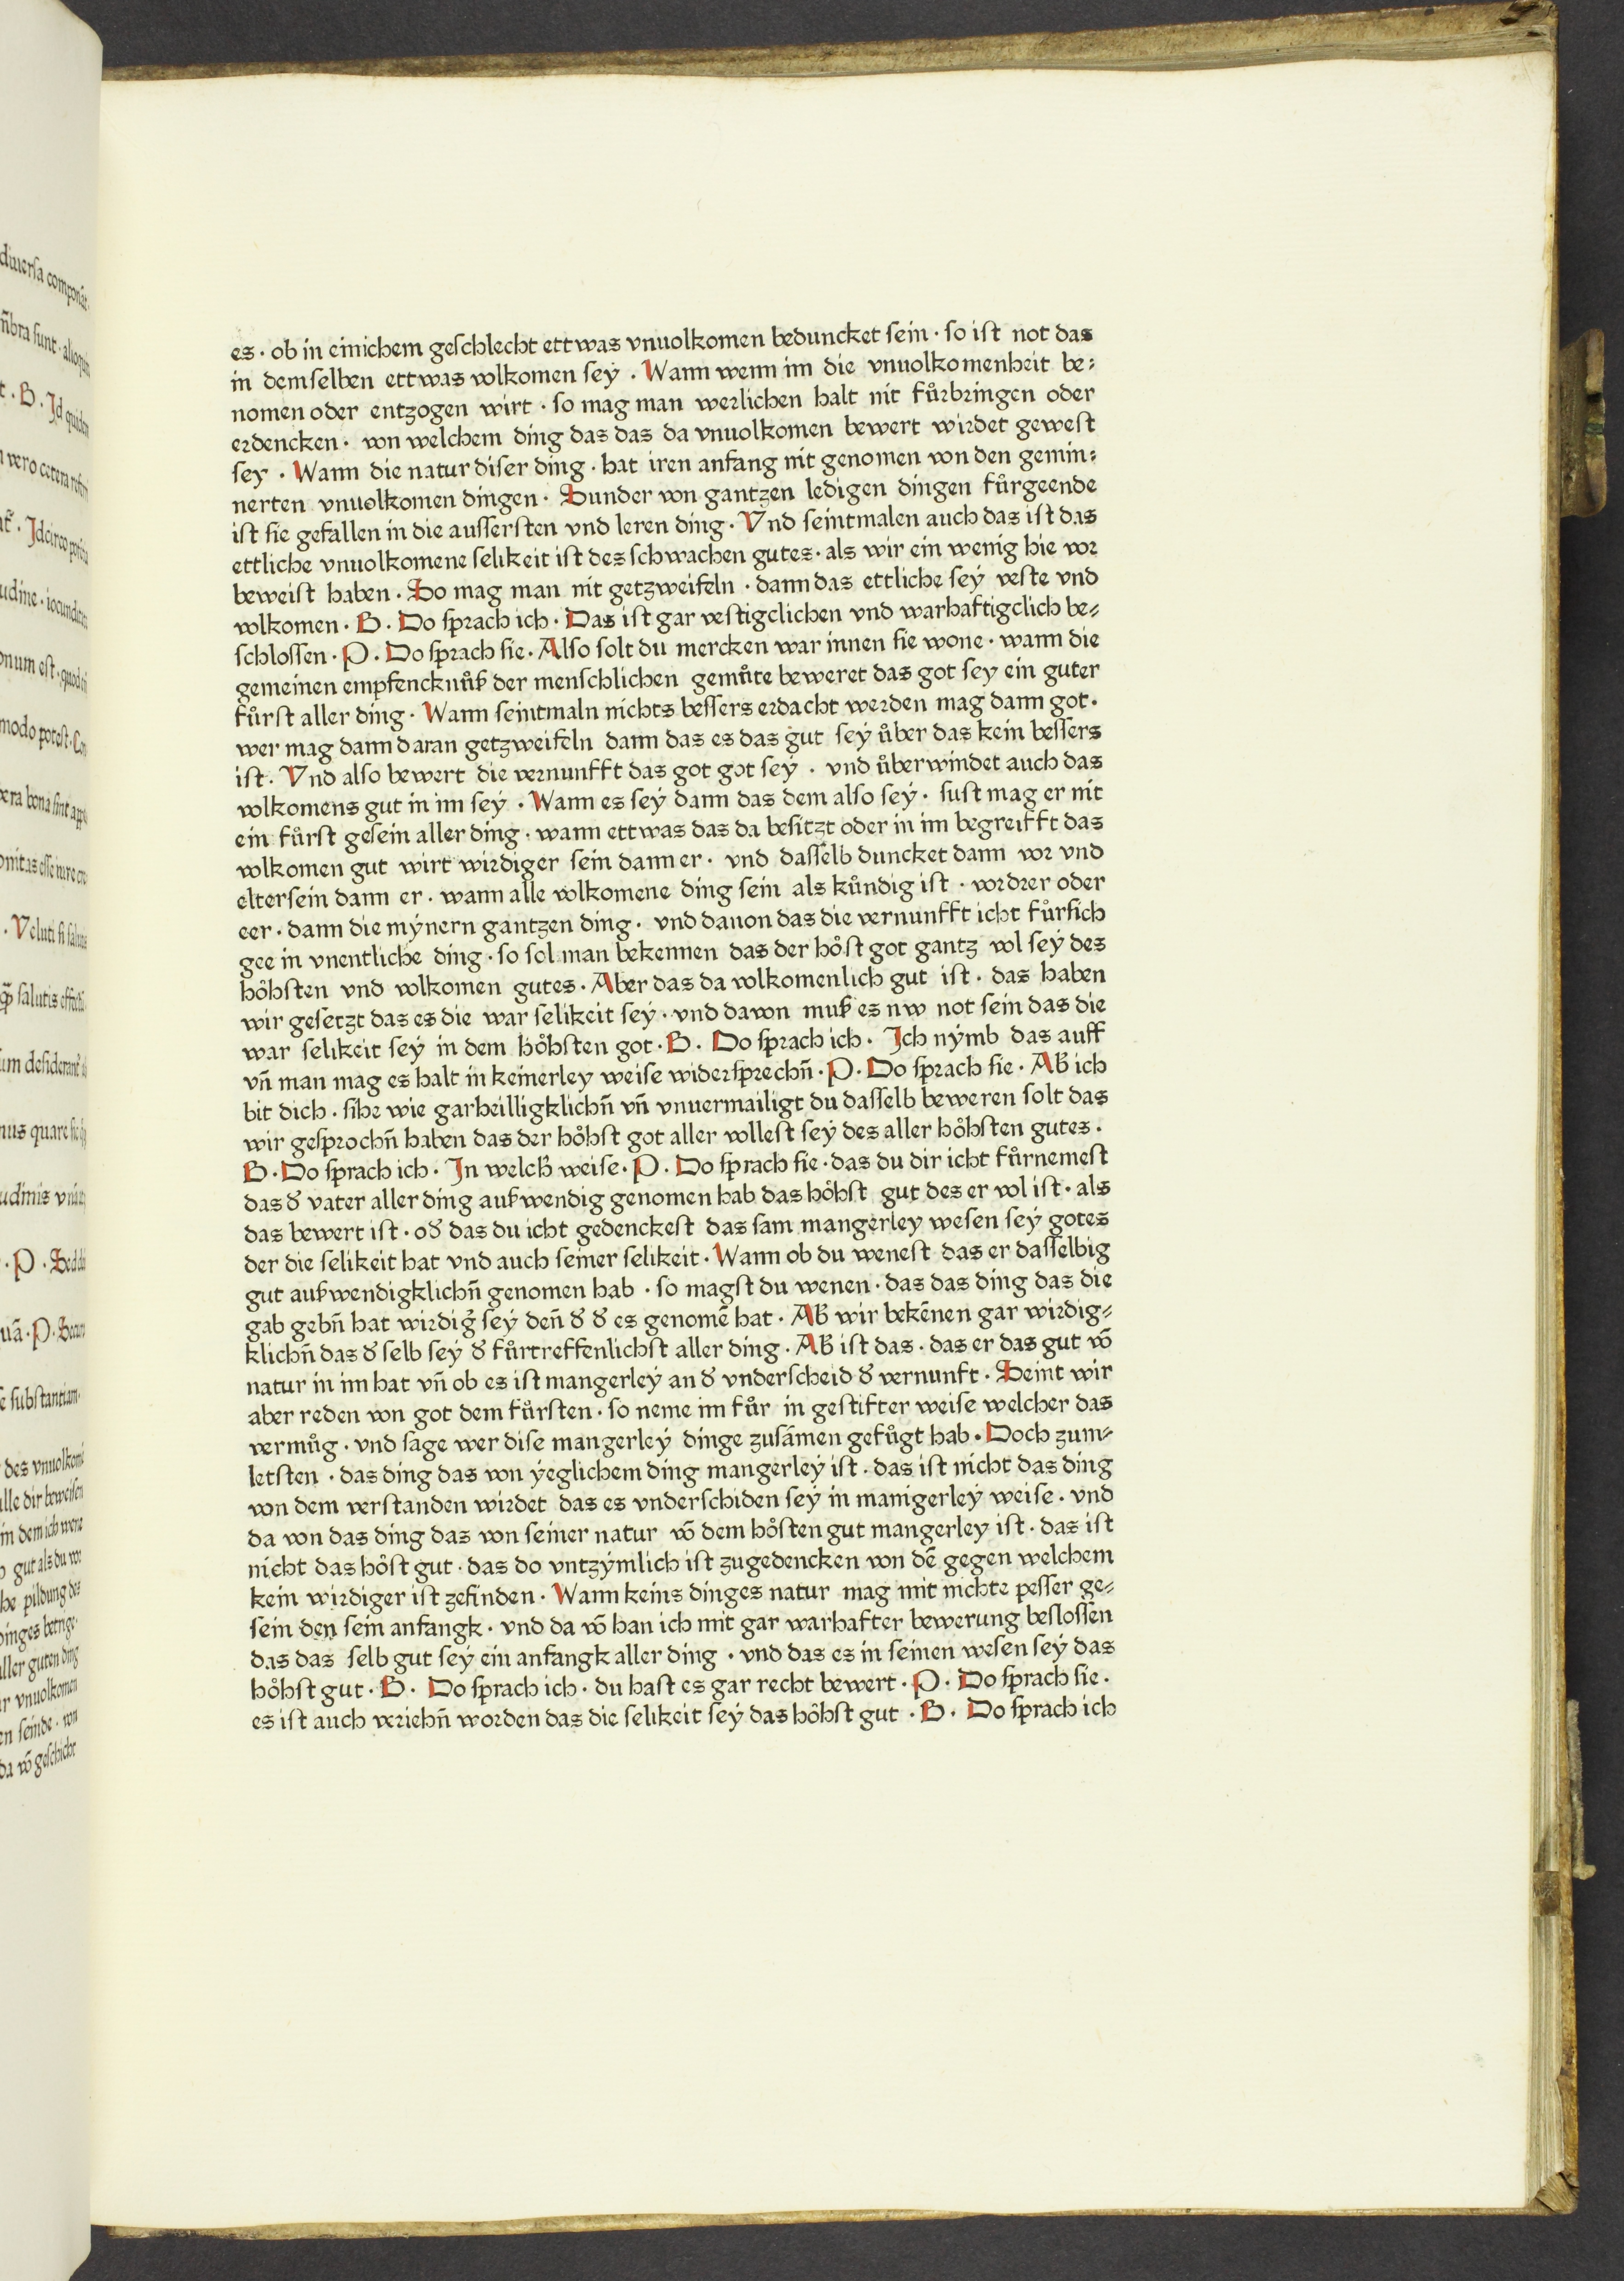 es · ob in einichem geſchlecht ettwas vnuolkomen beduncket ſein · ſo iſt not das
in demſelben ettwas volkomen ſeÿ . Wann wenn im die vnuolkomenheit be⸗
nomen oder entzogen wirt · ſo mag man werlichen halt nit fuͤrbringen oder
erdencken · von welchem ding das das da vnuolkomen bewert wirdet geweſt
ſey . Wann die natur diſer ding · hat iren anfang nit genomen von den gemin⸗
nerten vnuolkomen dingen · Sunder von gantzen ledigen dingen fuͤrgeende
iſt ſie gefallen in die auſſerſten vnd leren ding · Vnd ſeintmalen auch das iſt das
ettliche vnuolkomene ſelikeit iſt des ſchwachen gutes · als wir ein wenig hie vor
beweiſt haben . So mag man nit getzweifeln · dann das ettliche ſeÿ veſte vnd
volkomen . B . Do ſprach ich · Das iſt gar veſtigclichen vnd warhaftigclich be⸗
ſchloſſen · P . Do ſprach ſie · Alſo ſolt du mercken war innen ſie wone · wann die
gemeinen empfencknuͤß der menſchlichen gemuͤte beweret das got ſey ein guter
fuͤrſt aller ding . Wann ſeintmaln nichts beſſers erdacht werden mag dann got .
wer mag dann daran getzweifeln dann das es das gut ſeÿ uͤber das kein beſſers
iſt . Vnd alſo bewert die vernunfft das got got ſeÿ . vnd uͤberwindet auch das
volkomens gut in im ſeÿ . Wann es ſeÿ dann das dem alſo ſeÿ · ſuſt mag er nit
ein fuͤrſt geſein aller ding · wann ettwas das da beſitzt oder in im begreifft das
volkomen gut wirt wirdiger ſein dann er · vnd daſſelb duncket dann vor vnd
elter ſein dann er · wann alle volkomene ding ſein als kuͤndig iſt · vordrer oder
eer · dann die mÿnern gantzen ding · vnd dauon das die vernunfft icht fuͤrſich
gee in vnentliche ding · ſo ſol man bekennen das der hoͤſt got gantz vol ſeÿ des
hoͤhſten vnd volkomen gutes . Aber das da volkomenlich gut iſt · das haben
wir geſetzt das es die war ſelikeit ſeÿ · vnd davon muß es nw not ſein das die
war ſelikeit ſeÿ in dem hoͤhſten got · B . Do ſprach ich . Ich nÿmb das auff
vn̄ man mag es halt in keinerley weiſe widerſprechn̄ · P . Do ſprach ſie · Ab̄ ich
bit dich · ſihe wie garheilligklichn̄ vn̄ vnuermailigt du daſſelb beweren ſolt das
wir geſprochn̄ haben das der hoͤhſt got aller volleſt ſeÿ des aller hoͤhſten gutes .
B . Do ſprach ich . In welch̄ weiſe . P . Do ſprach ſie · das du dir icht fuͤrnemeſt
das d̄ vater aller ding außwendig genomen hab das hoͤhſt gut des er vol iſt · als
das bewert iſt · od̄ das du icht gedenckeſt das ſam mangerley weſen ſeÿ gotes
der die ſelikeit hat vnd auch ſeiner ſelikeit . Wann ob du weneſt das er daſſelbig
gut außwendigklichn̄ genomen hab · ſo magſt du wenen · das das ding das die
gab gebn̄ hat wirdig̉ ſeÿ den̄ d̄ d̄ es genomē hat · Ab̄ wir bekēnen gar wirdig⸗
klichn̄ das d̄ ſelb ſeÿ d̄ fuͤrtreffenlichſt aller ding . Ab̄ iſt das · das er das gut vō
natur in im hat vn̄ ob es iſt mangerleÿ an d̄ vnderſcheid d̄ vernunft . Seint wir
aber reden von got dem fuͤrſten · ſo neme im fuͤr in geſtifter weiſe welcher das
vermuͤg · vnd ſage wer diſe mangerleÿ dinge zuſāmen gefuͤgt hab . Doch zum⸗
letſten · das ding das von ÿeglichem ding mangerleÿ iſt · das iſt nicht das ding
von dem verſtanden wirdet das es vnderſchiden ſeÿ in manigerleÿ weiſe · vnd
da von das ding das von ſeiner natur vō dem hoͤſten gut mangerley iſt · das iſt
nicht das hoͤſt gut · das do vntzÿmlich iſt zugedencken von dē gegen welchem
kein wirdiger iſt zefinden . Wann keins dinges natur mag mit nichte peſſer ge⸗
ſein den ſein anfangk · vnd da vō han ich mit gar warhafter bewerung beſloſſen
das das ſelb gut ſeÿ ein anfangk aller ding · vnd das es in ſeinen weſen ſeÿ das
hoͤhſt gut . B . Do ſprach ich · du haſt es gar recht bewert . P . Do ſprach ſie .
es iſt auch veriehn̄ worden das die ſelikeit ſeÿ das hoͤhſt gut . B . Do ſprach ich